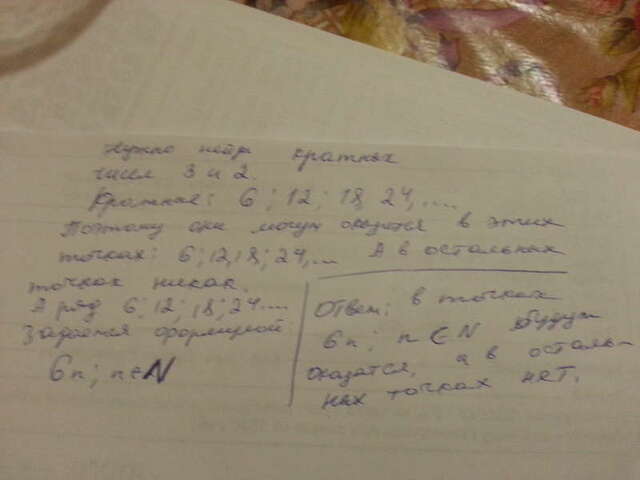 Нужно найти кратных
чисел 3 и 2.
Кратные: 6; 12; 18, 24, ....
Поэтому они могут оказатся в этих
точках: 6; 12, 18; 24, ... А в остальных
точках никак.
А ряд 6; 12; 18; 24....
Задается формулой
6n; n∈N
Ответ: в точках
6n; n∈N будут
оказатся, а в осталь-
ных точках нет.